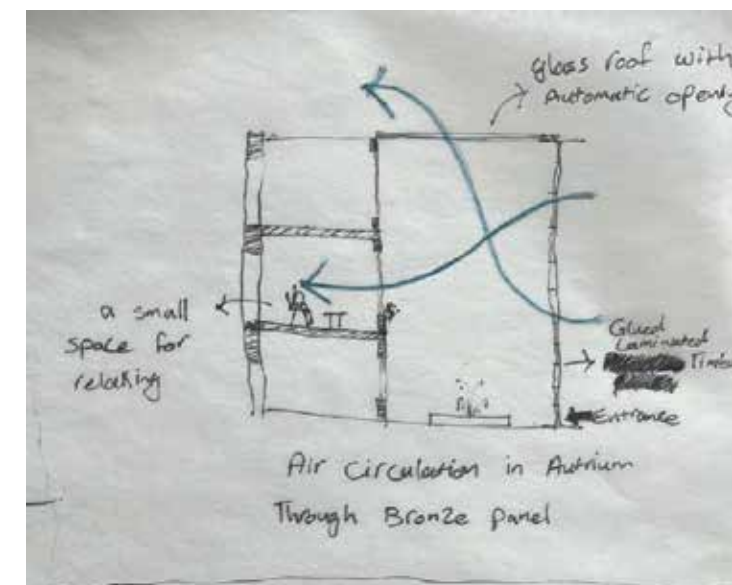 glass roof with
Automatic opening
a small
space for
relaxing
Glued
Laminated
Entrance
Air Circulation in Autrium
Through Bronze panel